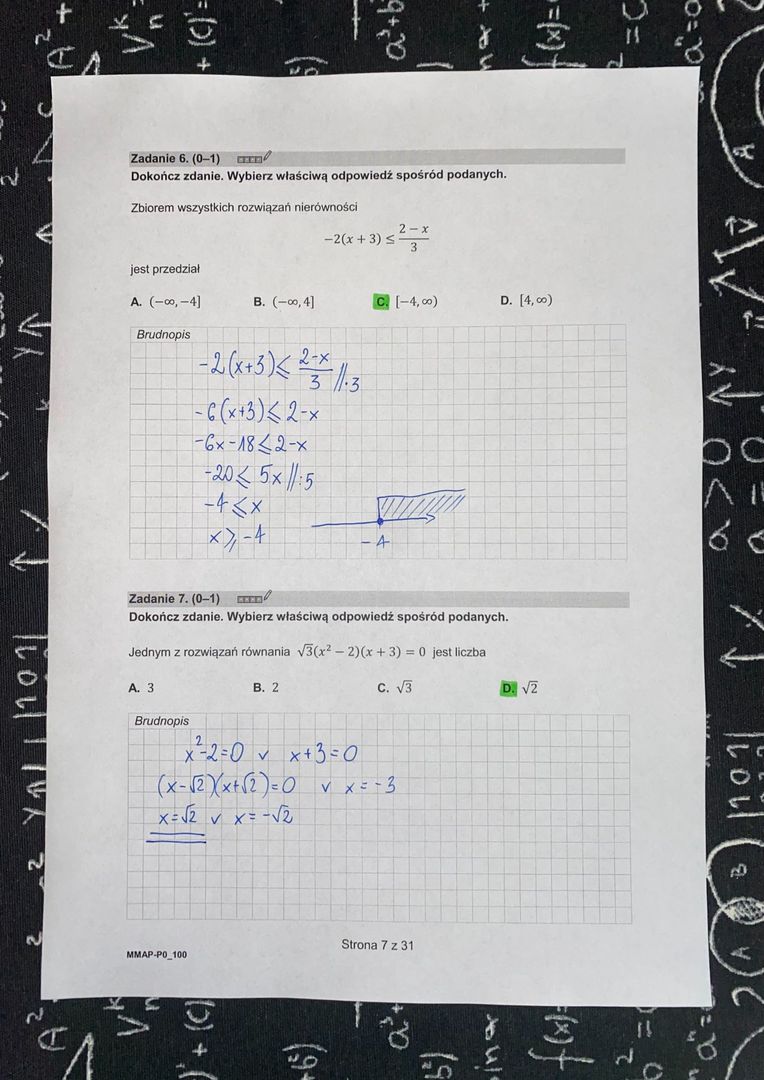 Zadanie 6. (0–1)
Dokończ zdanie. Wybierz właściwą odpowiedź spośród podanych.
Zbiorem wszystkich rozwiązań nierówności
−2(x + 3) ≤ (2 − x)/3
jest przedział
A. (−∞, −4] B. (−∞, 4] C. [−4, ∞) D. [4, ∞)
Brudnopis
-2(x+3) ⩽ (2-x)/3 //·3
-6(x+3) ⩽ 2-x
-6x-18 ⩽ 2-x
-20 ⩽ 5x //:5
-4 ⩽ x
x ⩾ -4
-4
Zadanie 7. (0–1)
Dokończ zdanie. Wybierz właściwą odpowiedź spośród podanych.
Jednym z rozwiązań równania √3(x² − 2)(x + 3) = 0 jest liczba
A. 3 B. 2 C. √3 D. √2
Brudnopis
x²-2=0 v x+3=0
(x-√2)(x+√2)=0 v x=-3
x=√2 v x=-√2
Strona 7 z 31
MMAP-P0_100